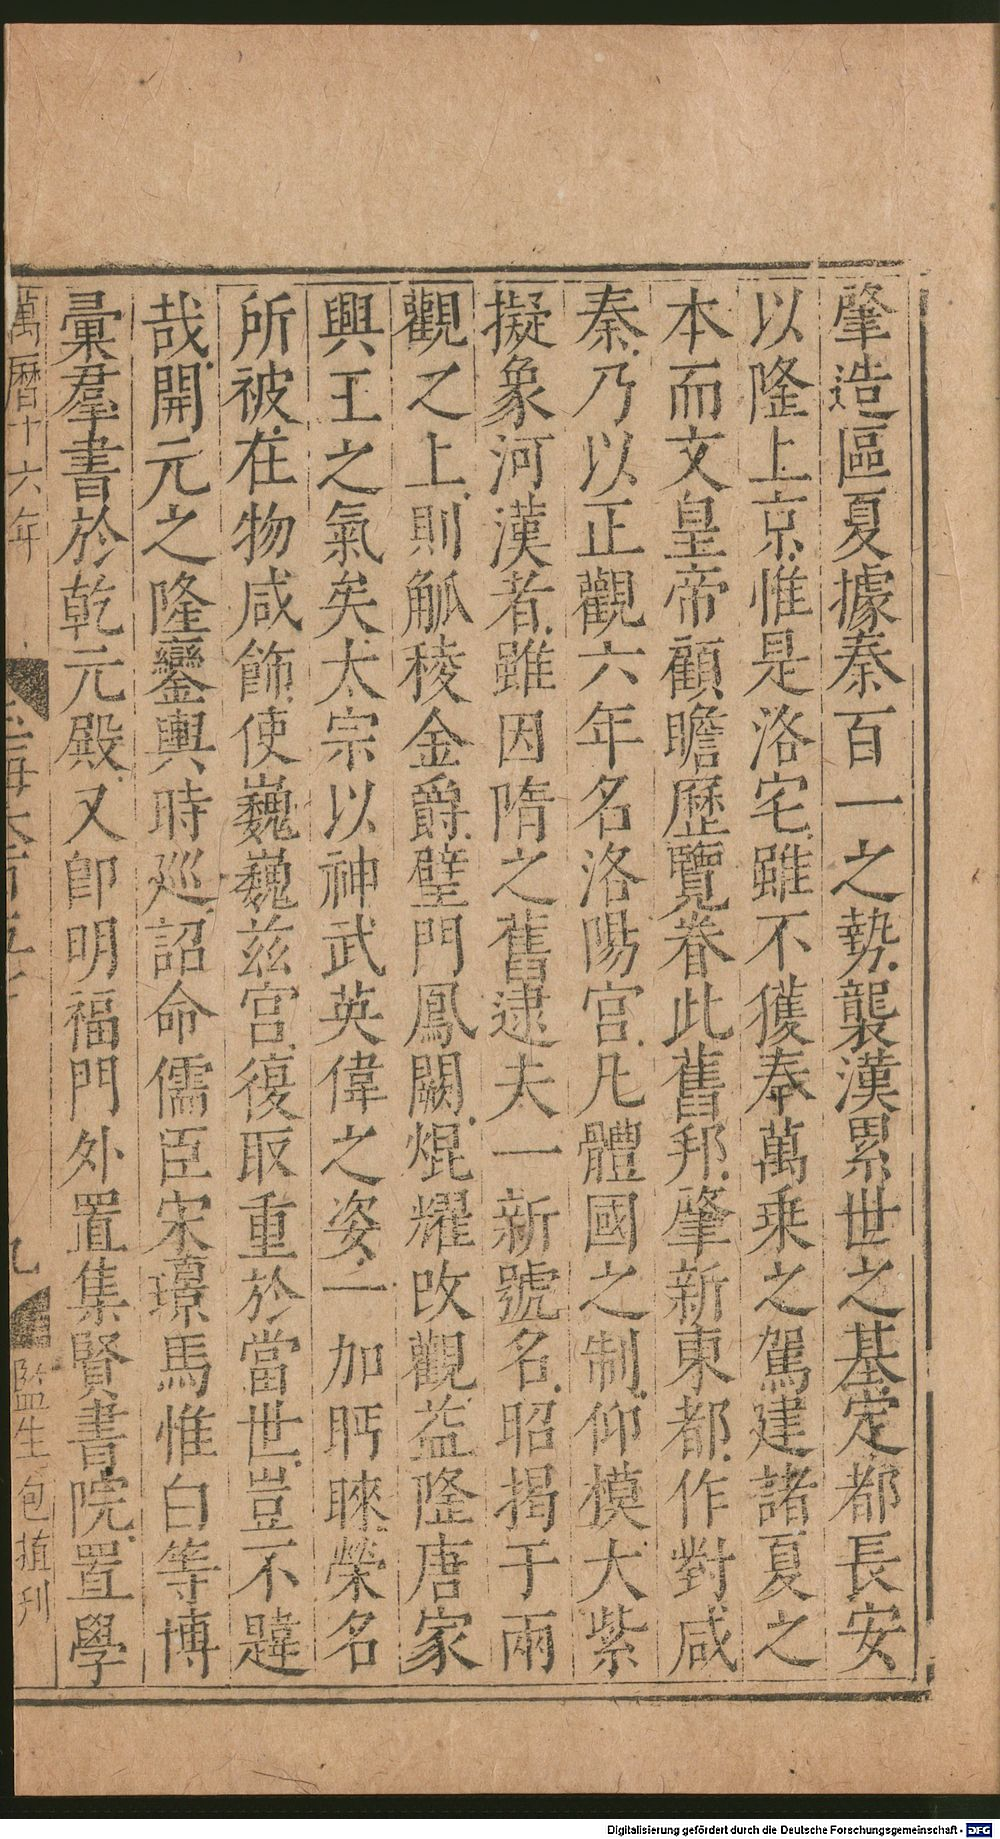 肇造區夏據秦百一之勢襲漢累世之基定都長安
以隆上京惟是洛宅雖不獲奉萬乗之駕建諸夏之
本而文皇帝顧瞻歷覽眷此舊邦肇新東都作對咸
秦乃以正觀六年名洛陽宫凡體國之制仰模大紫
擬象河漢者雖因隋之舊逮夫一新號名昭揭于兩
觀之上則觚稜金爵璧門鳳闕焜耀改觀益隆唐家
興王之氣矣太宗以神武英偉之姿一加眄睞榮名
所被在物咸飾使巍巍兹宫復取重於當世豈不韙
哉開元之隆鑾輿時廵詔命儒臣宋璟馬惟白等博
彙羣書於乾元殿又卽明福門外置集賢書院置學
萬曆十六年
九
監生包㨁刊
Digitalisierung gefördert durch die Deutsche Forschungsgemeinschaft - DFG